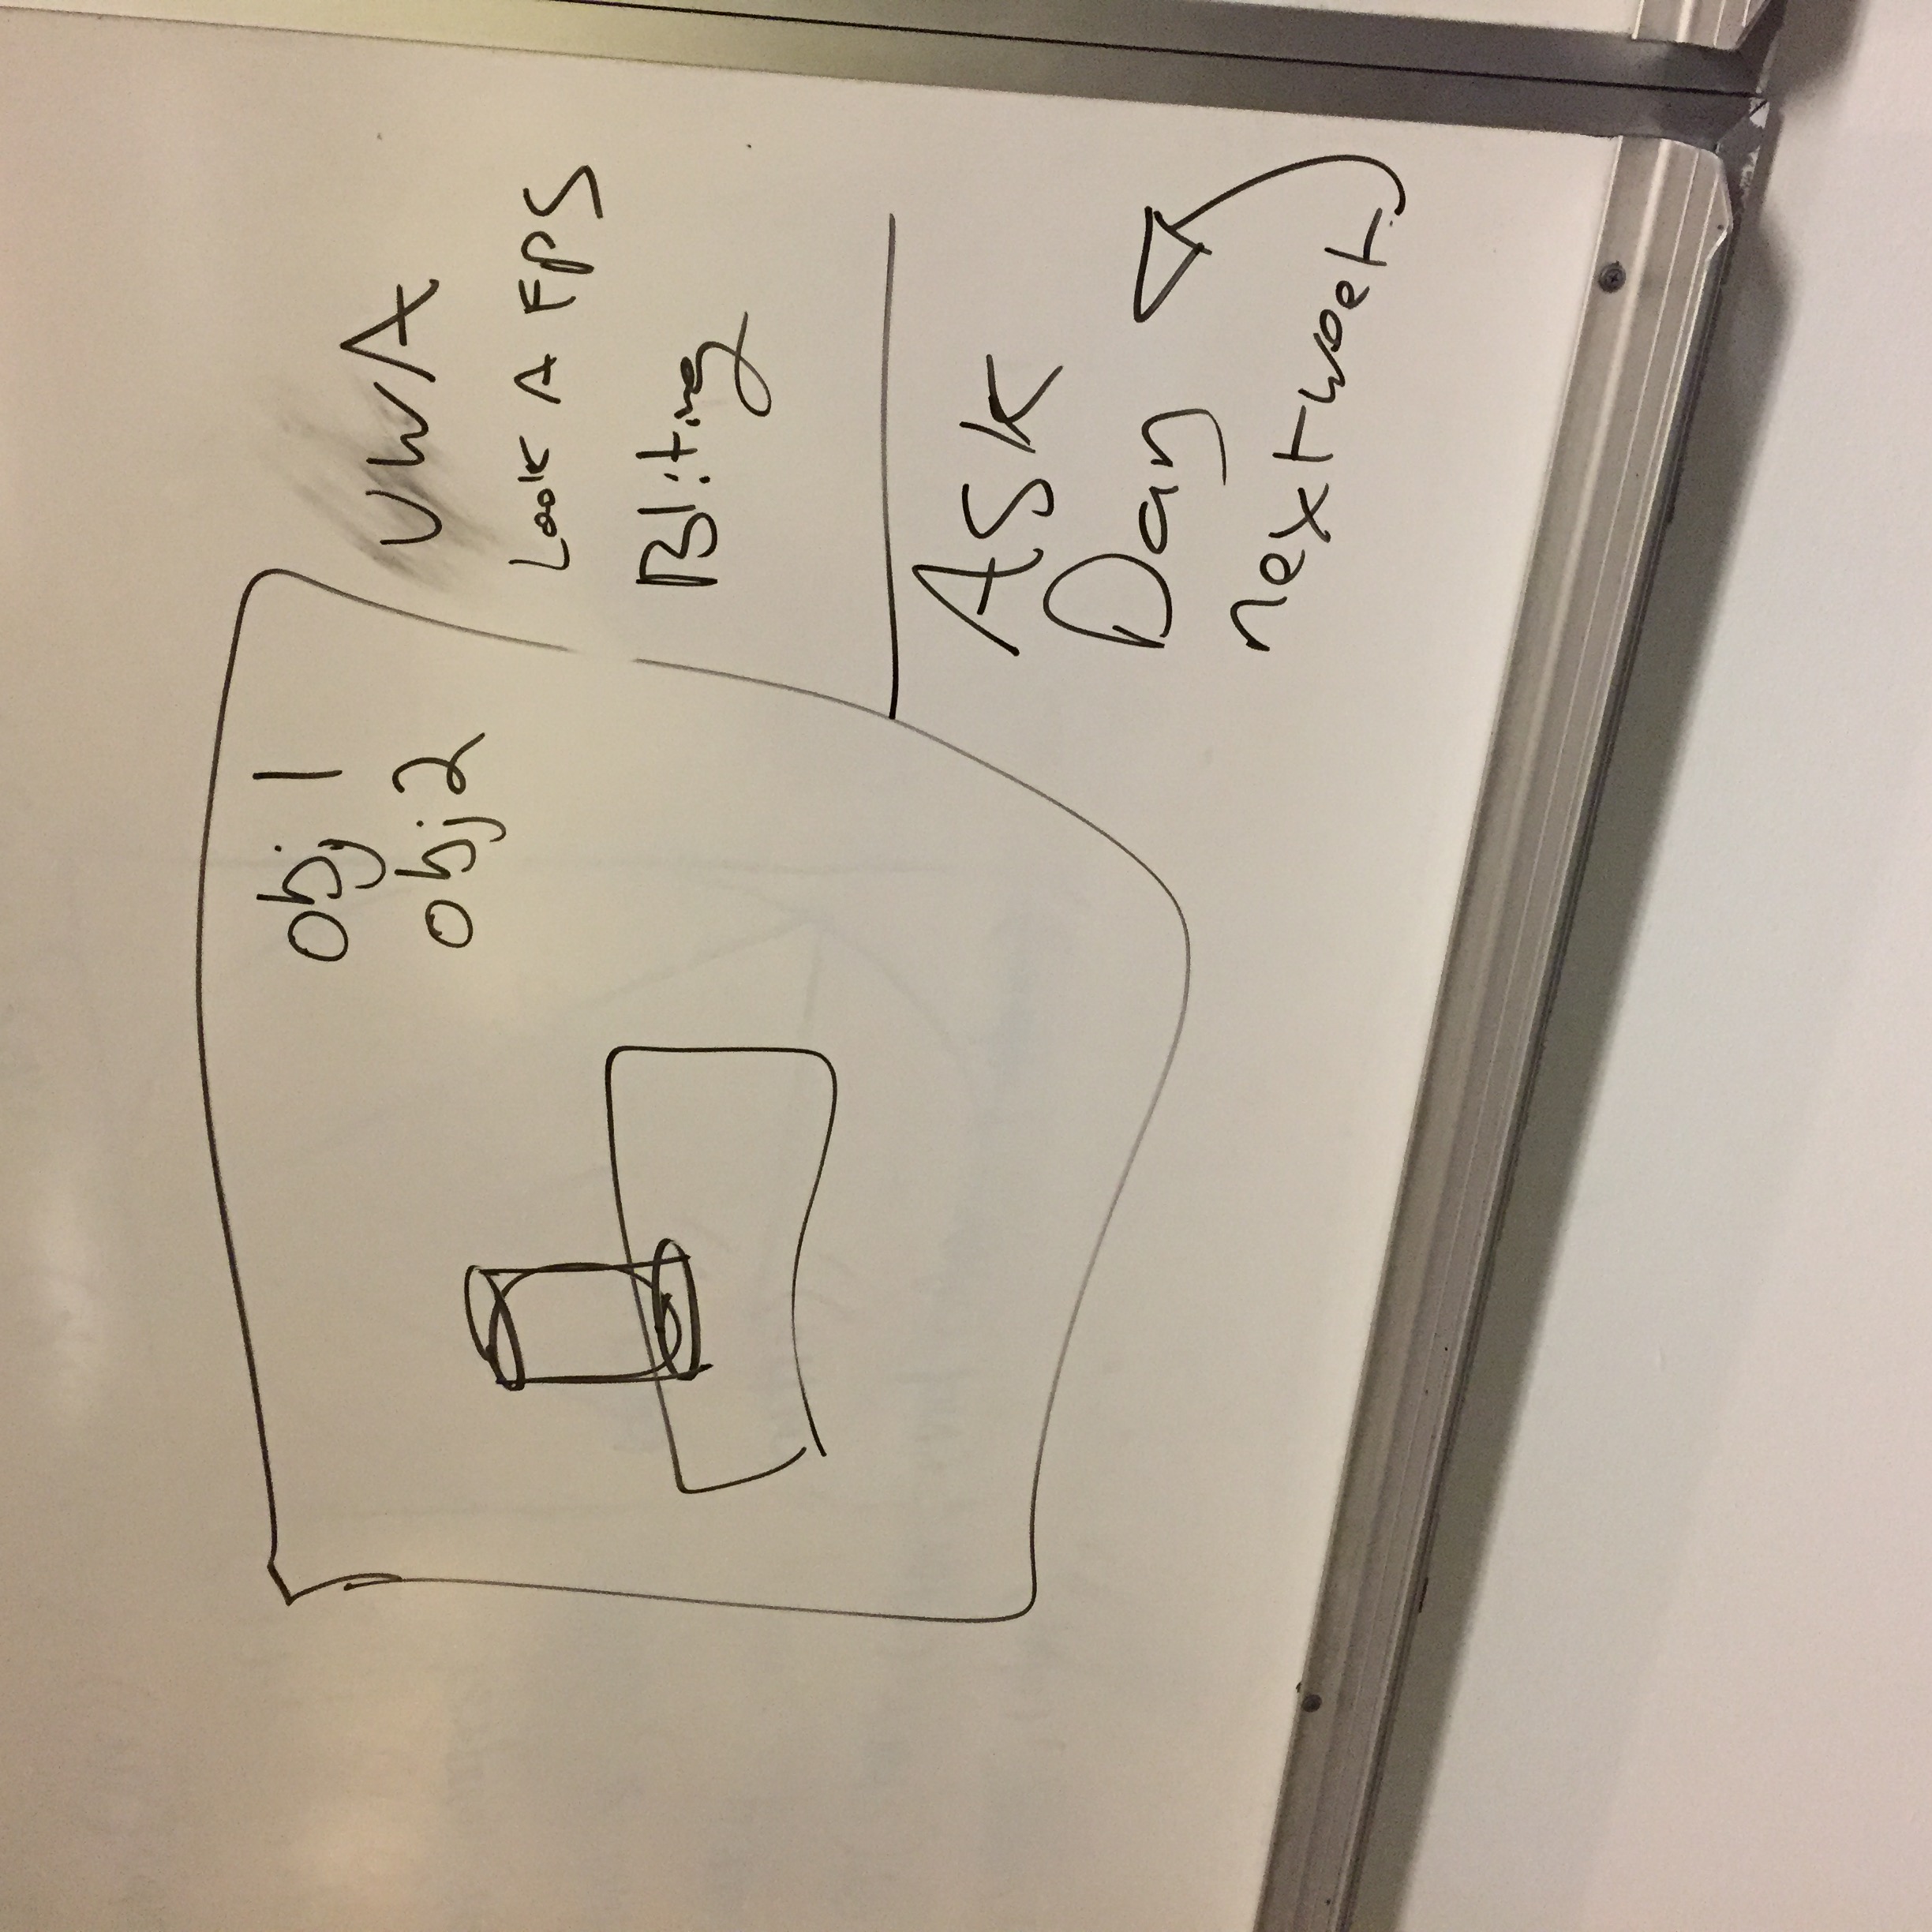 obj 1
obj2
UWA
Look A FPS
Bliting
Ask
Dan
next